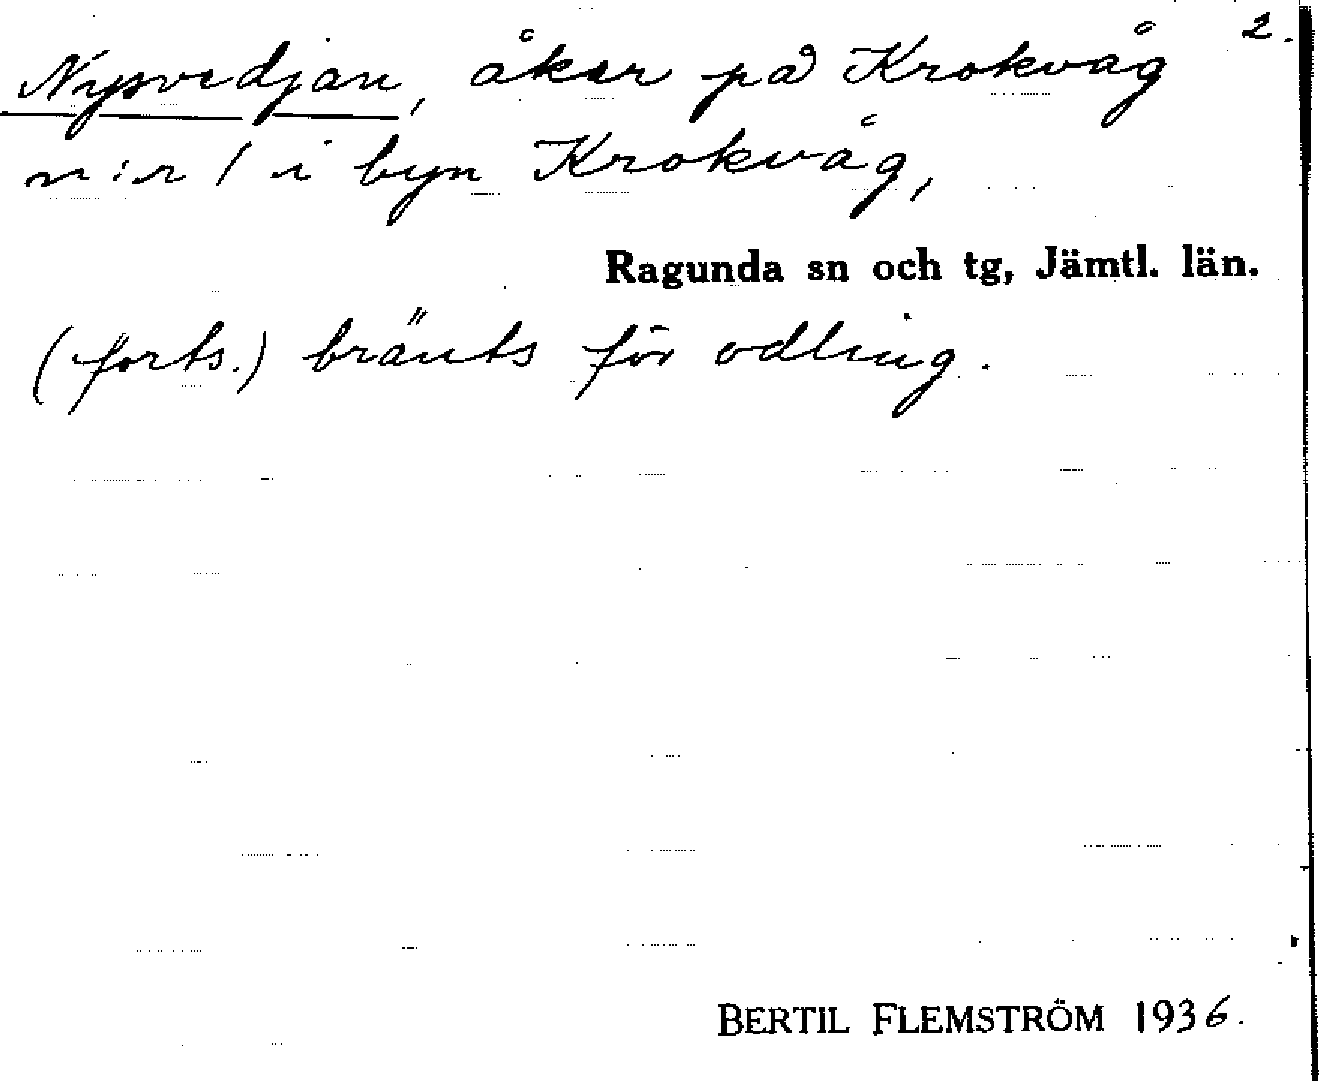 2.
Nysvedjan, åker på Krokvåg
n:r 1 i byn Krokvåg,
Ragunda sn och tg, Jämtl. län.
(forts.) bränts för odling.
BERTIL FLEMSTRÖM 1936.